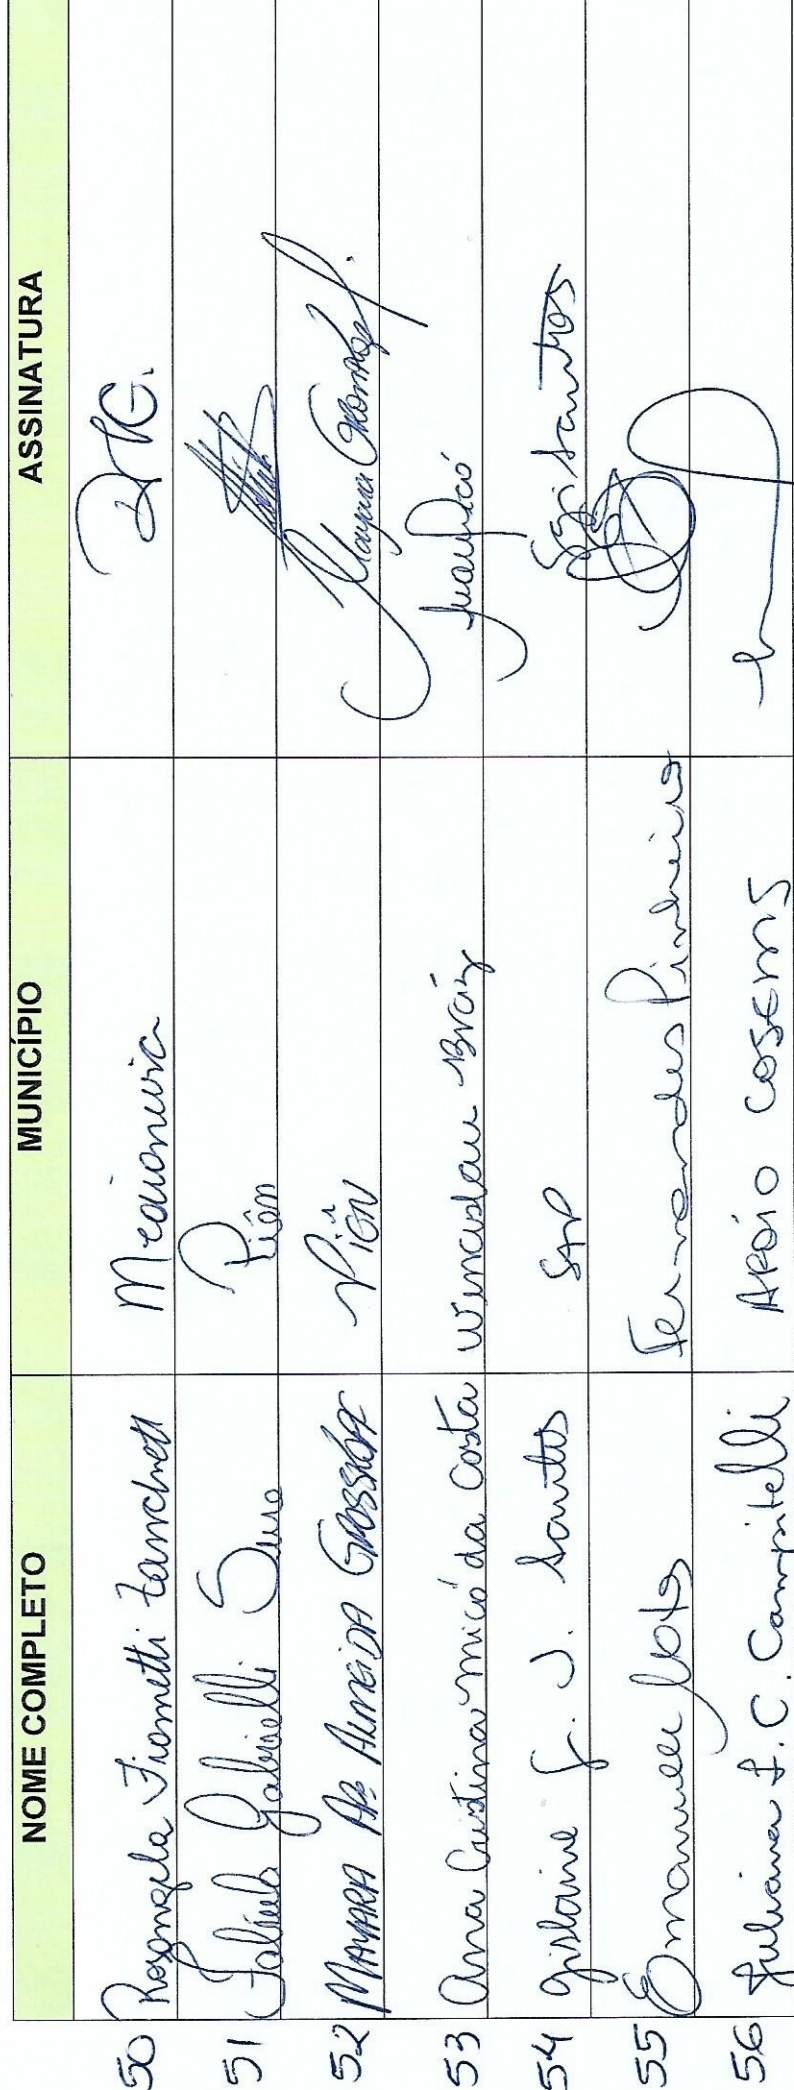 NOME COMPLETO MUNICÍPIO ASSINATURA
50 Rosangela Fiametti Zanchett
51 Fabiula Gabrielli Piên
52 MAYARA Ap. ALMEIDA GROSSKOPF Piên
53 Ana Cristina Micó da Costa Wenceslau Bráz
54 Gislaine F. J. Santos SAP Santos
55 Emanuelle Fernandes Pinheiro
56 Juliana F. C. Campitelli APOIO COSEMS